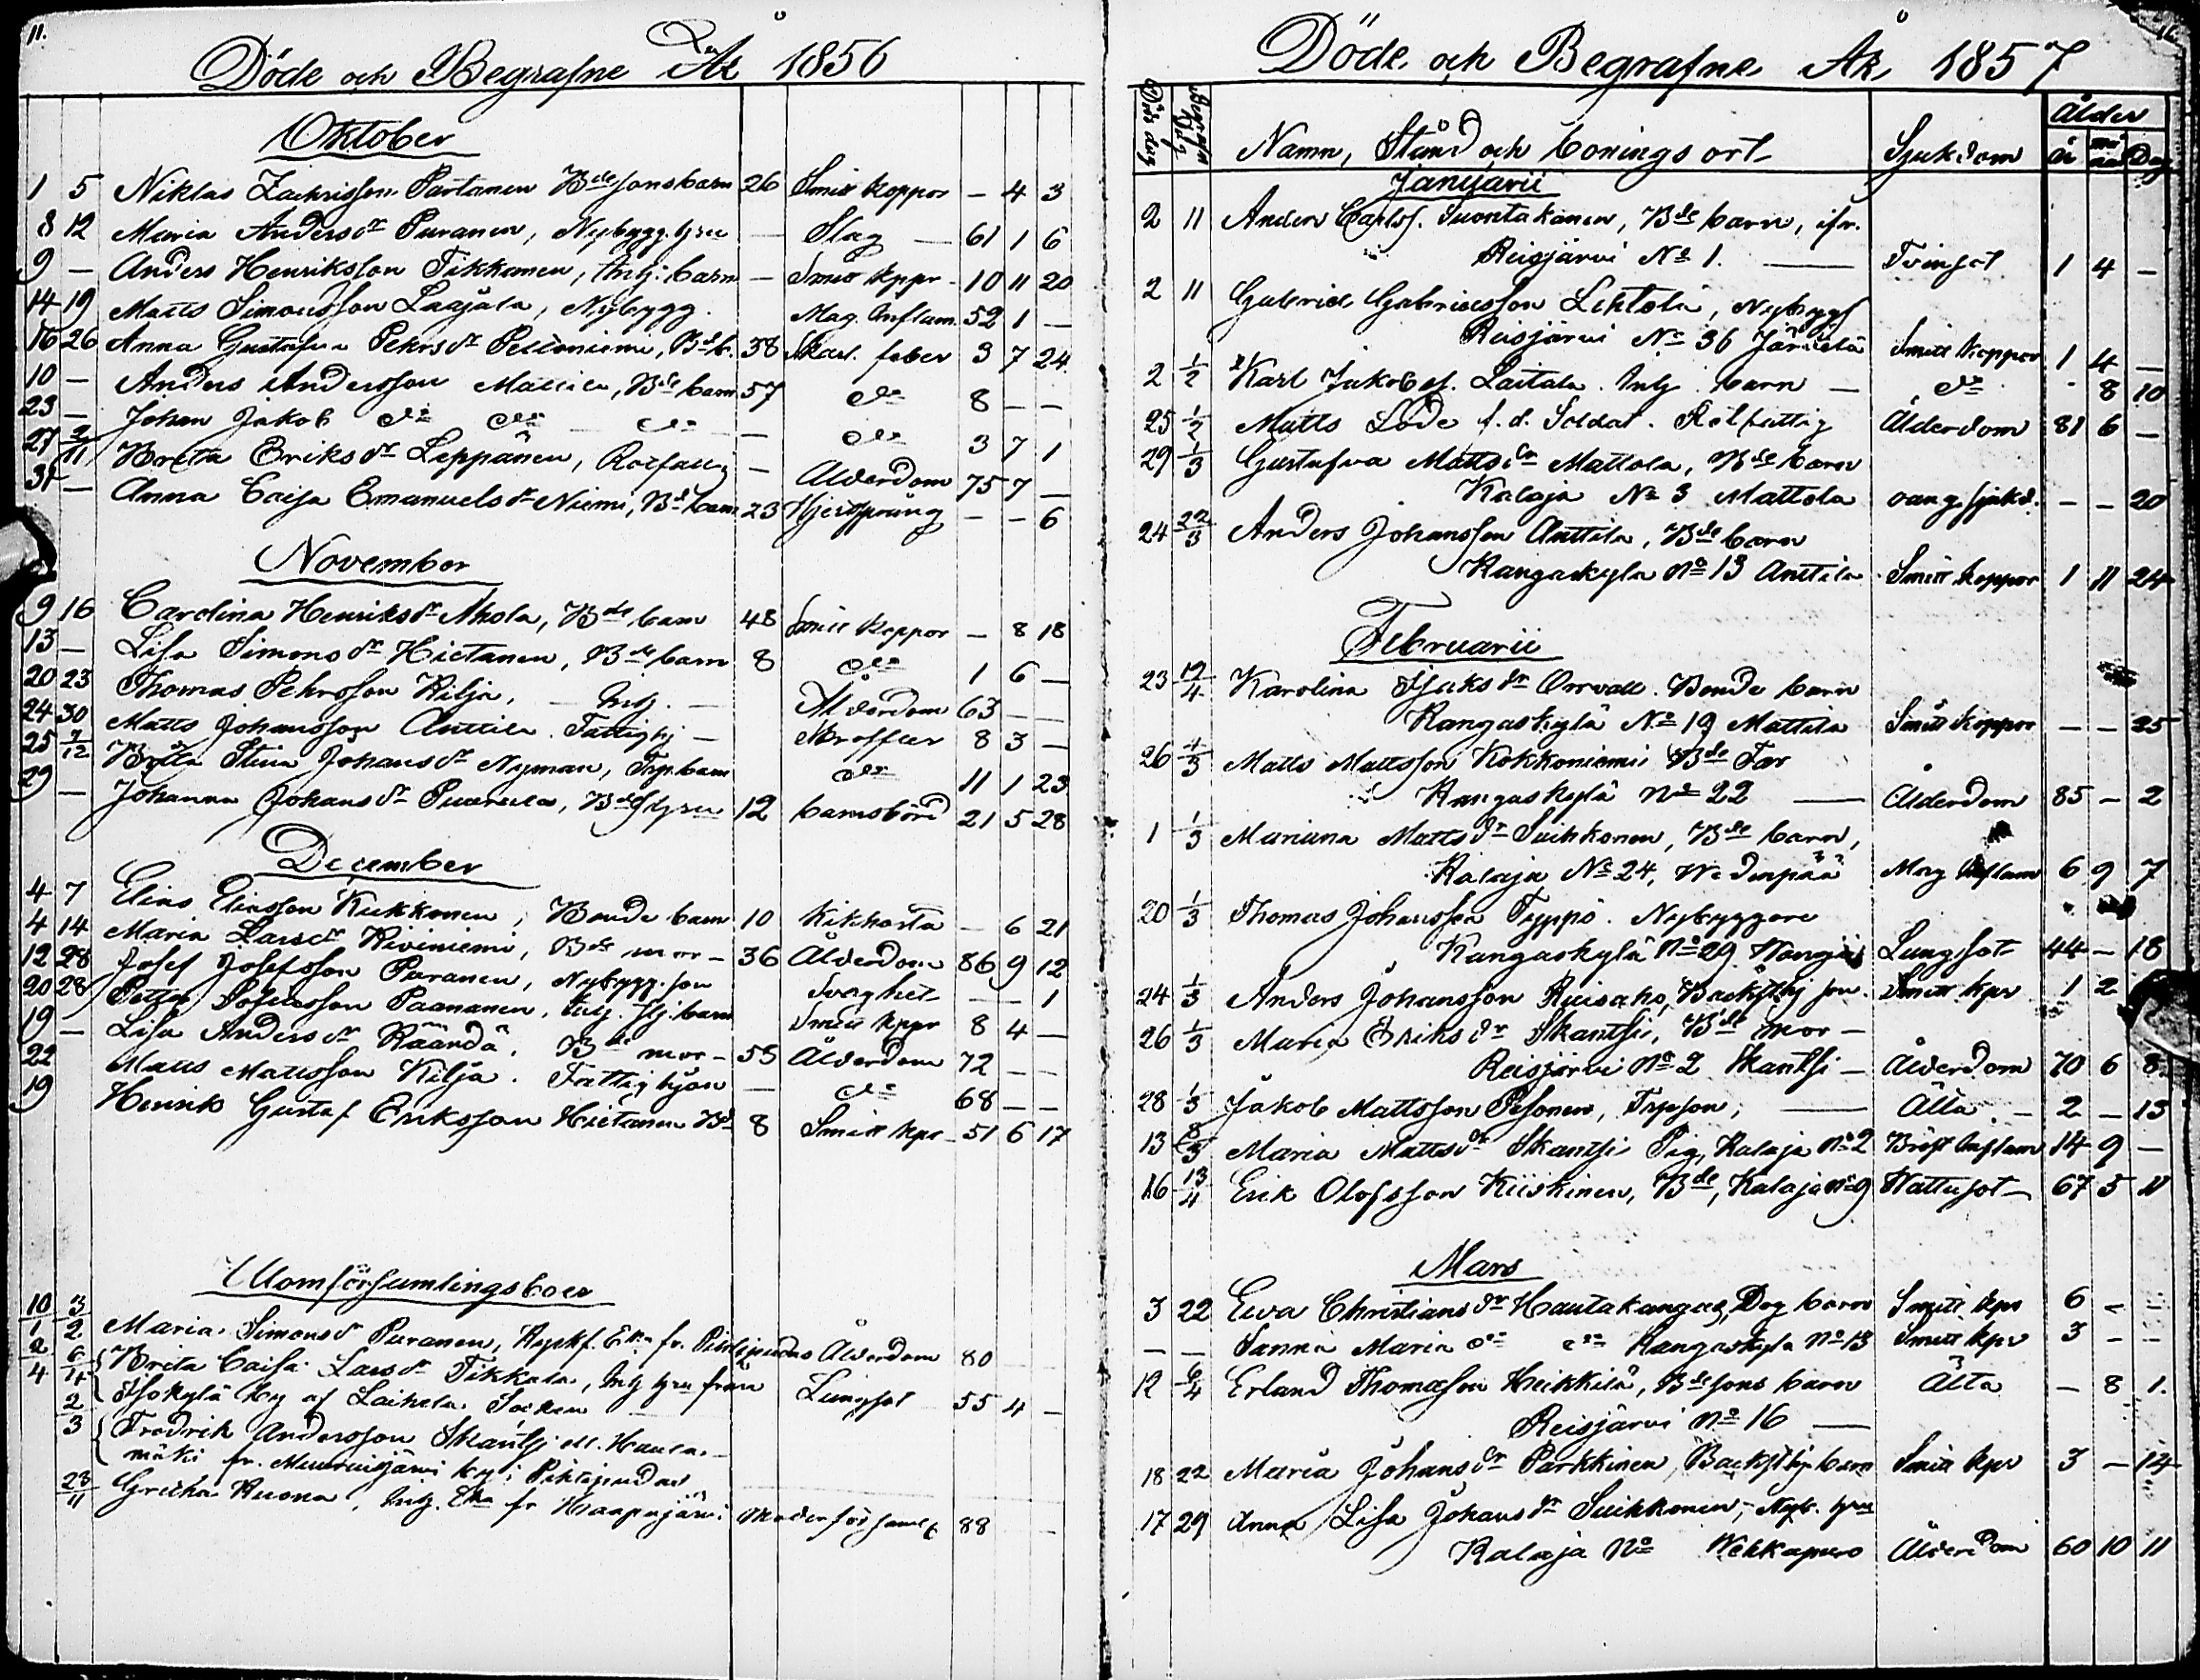 11.
Döde och Begrafne År 1856
Oktober
1 5 Niklas Zachrisson Partanen Bde sons barn 26 Smitt koppor – 4 3
8 12 Maria Andersdr Puranen, Nybygg. hru — Slag — 61 1 6
9 – Anders Henriksson Tikkanen, Inh: barn – Smitt kppr – 10 11 20
14 19 Matts Simonsson Laajala, Nybygg. Mag. Inflam. 52 1 –
16 26 Anna Gustafva Pehrsdr Peltoniemi, Bd b. 38 Skarl. feber 3 7 24
10 – Anders Andersson Mattila, Bde barn 57 do 8 – –
23 – Johan Jakob do do do — do 3 7 1
27 2/11 Breta Eriksdr Leppänen, Rotfattig – Ålderdom 75 7 –
31 – Anna Caisa Emanuelsdr Niemi, Bd barn 23 – – 6
November
9 16 Carolina Henriksdr Ahola, Bde barn 48 Smitt koppor – 8 18
13 – Lisa Simonsdr Hietanen, Bde barn 8 do 1 6 –
20 23 Thomas Pehrsson Kilja, – Inh. – Ålderdom 63 – –
24 30 Matts Johansson Anttila. Fattighj – 8 3 –
25 7/12 Britta Stina Johansdr Nyman, Trp barn do 11 1 23
29 – Johanna Johansdr, Bde hru 12 barnsbörd 21 5 28
December
4 7 Elias Eliasson Kukkonen, Bonde barn 10 Kikhosta – 6 21
4 14 Maria Larsdr Kiviniemi, Bde mor – 36 Ålderdom 86 9 12
12 28 Josef Josefsson Puranen, Nybygg. son Svaghet – – 1
20 28 Petter Johansson Paananen, Inh. barn Smitt kppr 8 4 –
19 – Lisa Andersdr Räändä. Bde mor – 53 Ålderdom 72 – –
22 Matts Mattsson Kilja. Fattig hjon — do 68 – –
19 Henrik Gustaf Eriksson Hietanen Bd 8 Smitt kpr – 51 6 17
Utomförsamlingsboer
10/1 3/2 Maria Simonsdr Puranen, Eka fr. Pihtipudas Ålderdom 80
2/4 6/4 Brita Caisa Larsdr Tikkala, Inh hru från
Isokylä by af Laihela Socken Lungsot 55 4 –
2/3 Fredrik Andersson Skantsj ell. Hauta-
mäki fr. Muurasjärvi by i Pihtipudas
23/11 Gretha Ruona, Inh. Eka fr Haapajärvi 88 –
Döde och Begrafne År 1857
Döds dag Begrafn. dag Namn, Stånd och bonings ort Sjukdom Ålder år månad Dag
Januarii
2 11 Anders Carlss. Suontakanen, Bde barn, ifr.
Reisjärvi No 1. — Tvinsot 1 4 –
2 11 Gabriel Gabrielsson Lehtola, Nybygg
Reisjärvi No 36 Järvelä Smitt koppor 1 4 –
2 1/2 Karl Jakobss. Laitala. Inh. barn — do – 8 10
25 1/2 Matts Lode f. d. Soldat. Rotfattig Ålderdom 81 6 –
29 1/3 Gustafva Mattsdr Mattola, Bde barn
Kalaja No 3 Mattola oang. sjukd. – – 20
24 22/3 Anders Johansson Anttila, Bde barn
Kangaskylä No 13 Anttila Smitt koppor 1 11 24
Februarii
23 12/4 Karolina Isaksdr Orrvall. Bonde barn
Kangaskylä No 19 Mattila Smitt koppor – – 25
26 4/3 Matts Mattsson Kokkoniemi Bde Far
Kangaskylä No 22 — Ålderdom 85 – 2
1 1/3 Mariana Mattsdr Suikkonen, Bde barn,
Kalaja No 24, Wedenpää Mag Inflam 6 9 7
20 1/3 Thomas Johansson Typpö. Nybyggare
Kangaskylä No 29 Lungsot 44 – 18
24 1/3 Anders Johansson Ruisaho, Backsthj son. Smitt kpr 1 2
26 1/3 Maria Eriksdr Skantsi, Bde Mor –
Reisjärvi No 2 Skantsi – Ålderdom 70 6 8
28 1/3 Jakob Mattsson Pesonen, Trpson, — Älta – 2 – 13
13 8/3 Maria Mattsdr Skantsi Pig, Kalaja No 2 Bröst Inflam 14 9 –
16 13/4 Erik Olofsson Kiiskinen, Bde, Kalaja No 9 Wattusot – 67 5 11
Mars
3 22 Ewa Christiansdr Hautakangas, Drg barn Smitt kpr 6 – –
– – Sanna Maria do do Kangaskyla No 13 Smitt kpr 3 – –
12 6/4 Erland Thomasson Heikkilä, Bde sons barn Älta – 8 1.
Reisjärvi No 16 —
18 22 Maria Johansdr Parkkinen, Backsthj barn Smitt kpr 3 – 14
17 29 Anna Lisa Johansdr Suikkonen, Nyb. hru
Kalaja No Wehkapuro Ålderdom 60 10 11